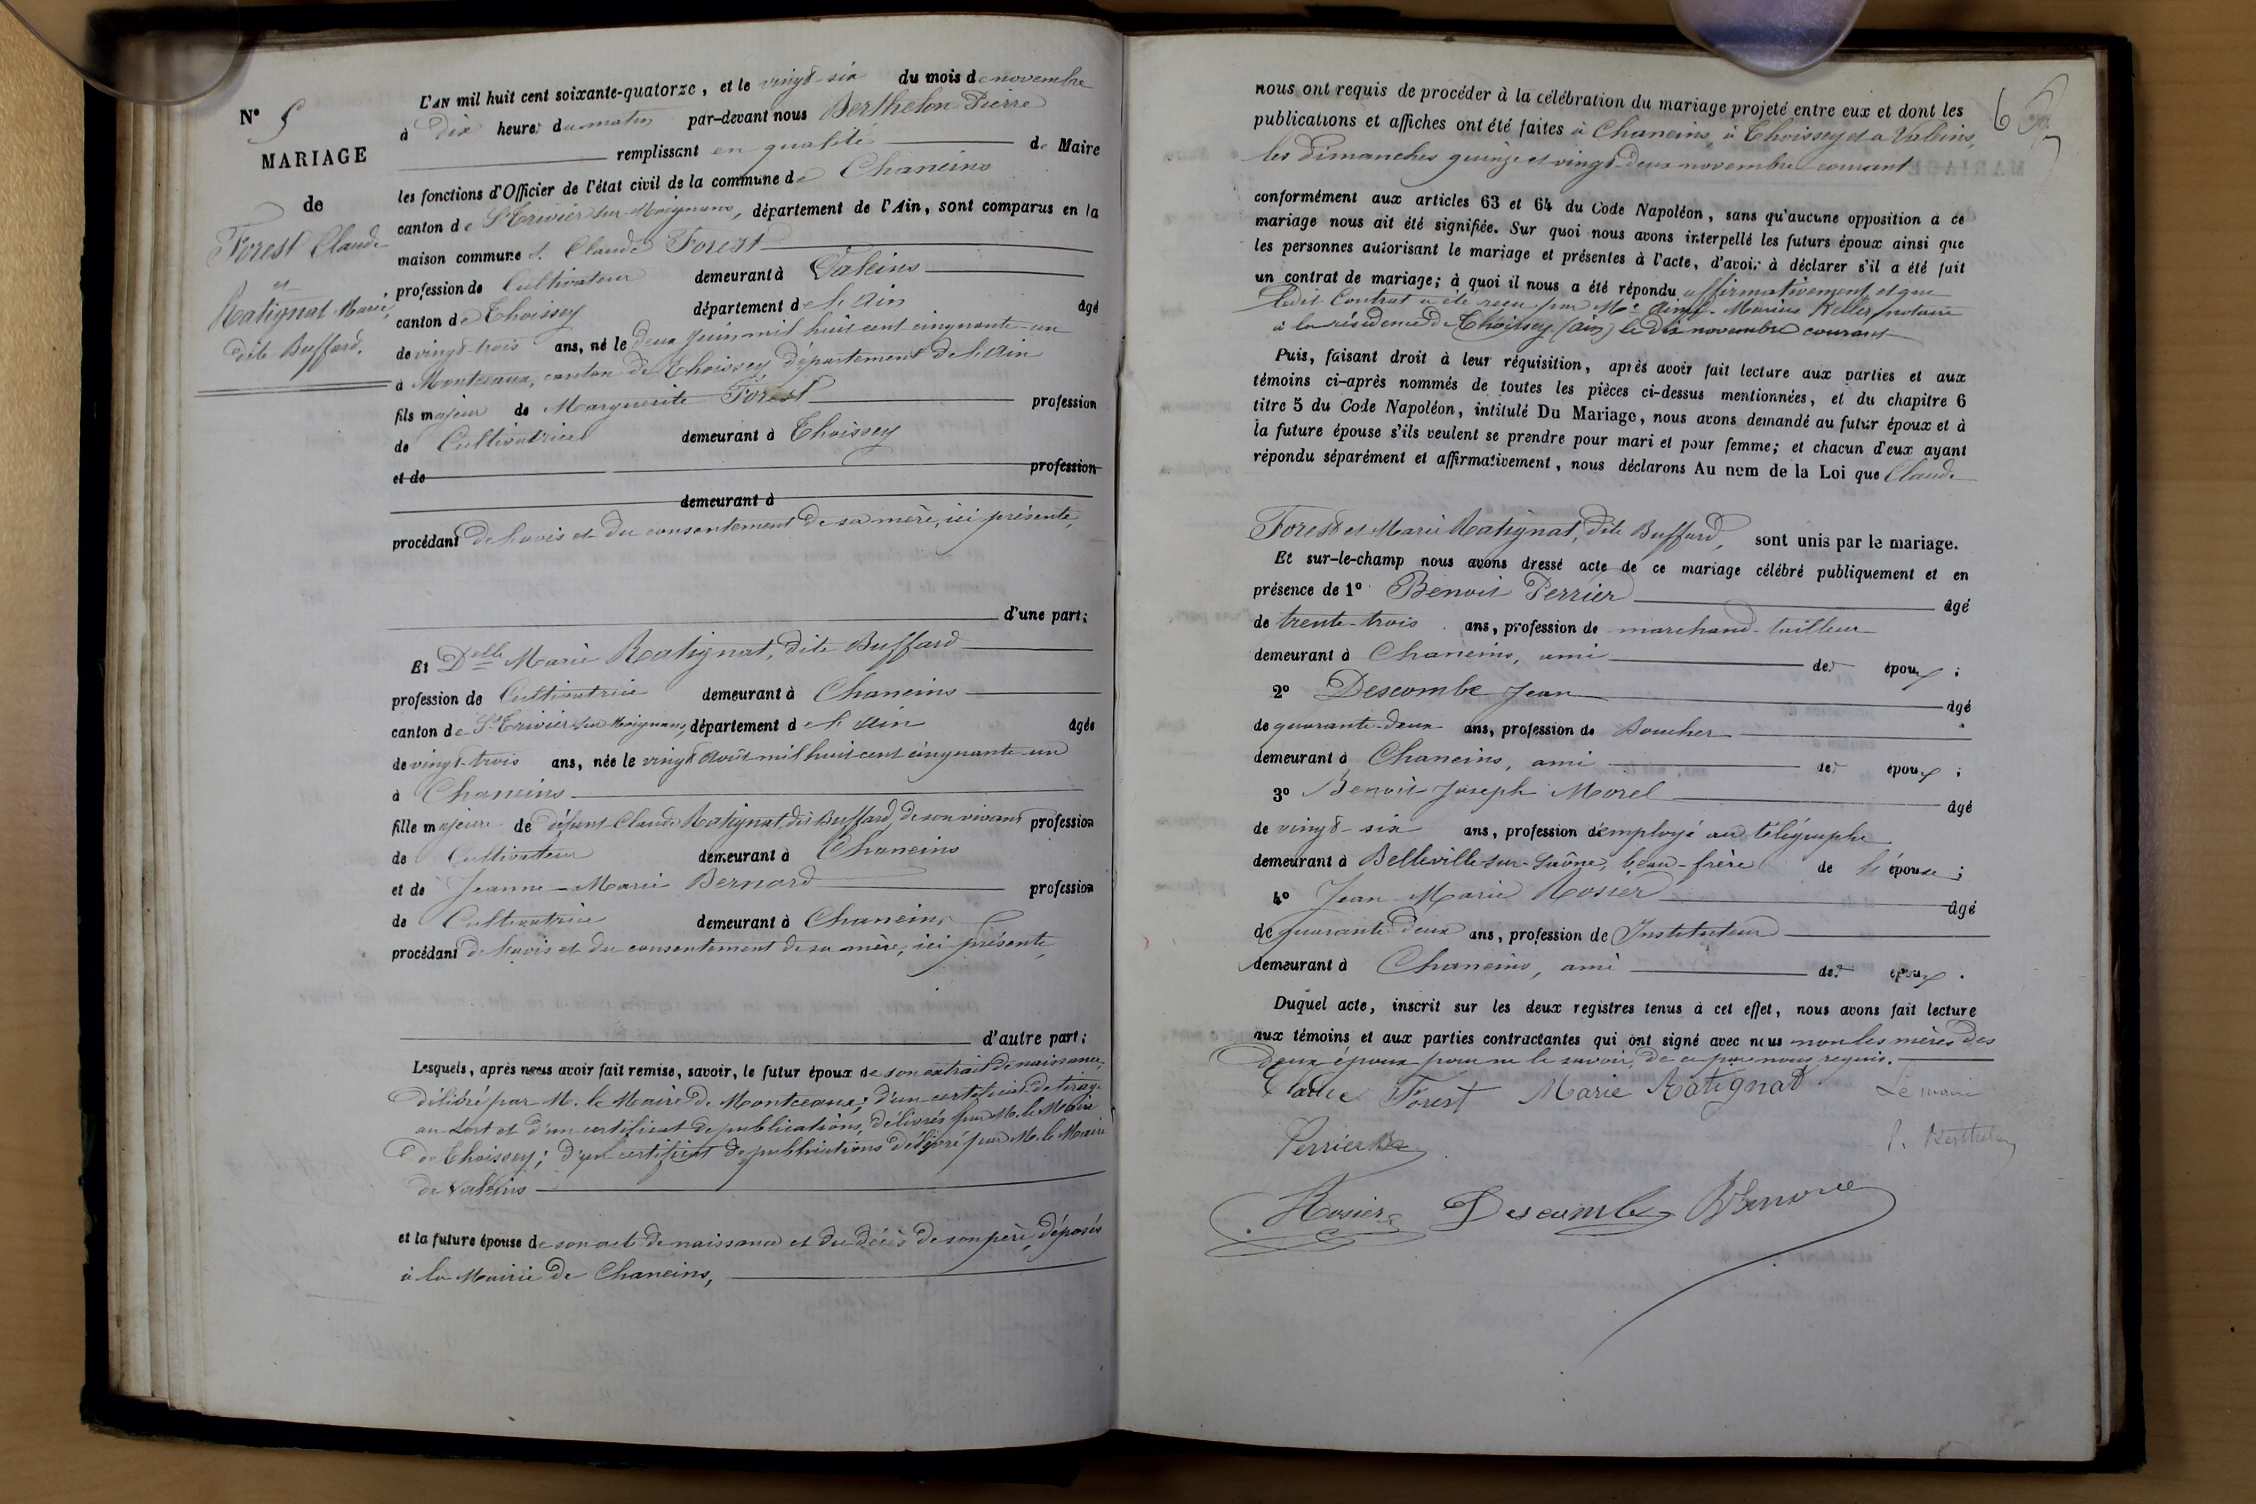 N° 5
MARIAGE
de
Forest Claude
et
Ratignat Marie,
dite Buffard.
L'AN mil huit cent soixante-quatorze, et le vingt-six du mois de novembre
à dix heures du matin par-devant nous Berthelon Pierre
remplissant en qualité de Maire
les fonctions d'Officier de l'état civil de la commune de Chaneins
canton de St Trivier sur Moignans, département de l'Ain, sont comparus en la
maison commune Claude Forest
profession de Cultivateur demeurant à Valeins
canton de Thoissey département de l'Ain âgé
de vingt-trois ans, né le deux juin mil huit cent cinquante-un
à Montceaux, canton de Thoissey département de l'Ain
fils majeur de Marguerite Forest profession
de Cultivatrice demeurant à Thoissey
et de profession
demeurant à
procédant de l'avis et du consentement de sa mère, ici présente,
d'une part;
Et Delle Marie Ratignat, dite Buffard
profession de Cultivatrice demeurant à Chaneins
canton de St Trivier sur Moignans, département de l'Ain âgée
de vingt-trois ans, née le vingt août mil huit cent cinquante-un
à Chaneins
fille majeure de défunt Claude Ratignat, dit Buffard, de son vivant profession
de Cultivateur demeurant à Chaneins
et de Jeanne-Marie Bernard profession
de Cultivatrice demeurant à Chaneins
procédant de l'avis et du consentement de sa mère, ici présente,
d'autre part;
Lesquels, après nous avoir fait remise, savoir, le futur époux de son extrait de naissance,
délivré par M. le Maire de Montceaux; d'un certificat de tirage
au sort et d'un certificat de publications, délivrés par M. le Maire
de Thoissey; d'un certificat de publications délivré par M. le Maire
de Valeins
et la future épouse de son acte de naissance et du décès de son père, déposés
à la Mairie de Chaneins,
6
nous ont requis de procéder à la célébration du mariage projeté entre eux et dont les
publications et affiches ont été faites à Chaneins, à Thoissey et à Valeins,
les dimanches quinze et vingt-deux novembre courant
conformément aux articles 63 et 64 du Code Napoléon, sans qu'aucune opposition à ce
mariage nous ait été signifiée. Sur quoi nous avons interpellé les futurs époux ainsi que
les personnes autorisant le mariage et présentes à l'acte, d'avoir à déclarer s'il a été fait
un contrat de mariage; à quoi il nous a été répondu affirmativement et que
ledit Contrat a été reçu par Me Aimé-Marius Keller, notaire
à la résidence de Thoissey (Ain) le dix novembre courant
Puis, faisant droit à leur réquisition, après avoir fait lecture aux parties et aux
témoins ci-après nommés de toutes les pièces ci-dessus mentionnées, et du chapitre 6
titre 5 du Code Napoléon, intitulé Du Mariage, nous avons demandé au futur époux et à
la future épouse s'ils veulent se prendre pour mari et pour femme; et chacun d'eux ayant
répondu séparément et affirmativement, nous déclarons Au nom de la Loi que Claude
Forest et Marie Ratignat, dite Buffard, sont unis par le mariage.
Et sur-le-champ nous avons dressé acte de ce mariage célébré publiquement et en
présence de 1° Benoit Perrier âgé
de trente-trois ans, profession de marchand-tailleur
demeurant à Chaneins, ami des époux;
2° Descombe Jean âgé
de quarante-deux ans, profession de Boucher
demeurant à Chaneins, ami des époux;
3° Benoit Joseph Morel âgé
de vingt-six ans, profession d'employé au télégraphe
demeurant à Belleville-sur-Saône, beau-frère de l'épouse;
4° Jean Marie Rosier âgé
de quarante-deux ans, profession de Instituteur
demeurant à Chaneins, ami des époux.
Duquel acte, inscrit sur les deux registres tenus à cet effet, nous avons fait lecture
aux témoins et aux parties contractantes qui ont signé avec nous non les mères des
deux époux pour ne le savoir, de ce par nous requis.
Claude Forest Marie Ratignat Le maire
Perrier P. Berthelon
Rosier Descombe